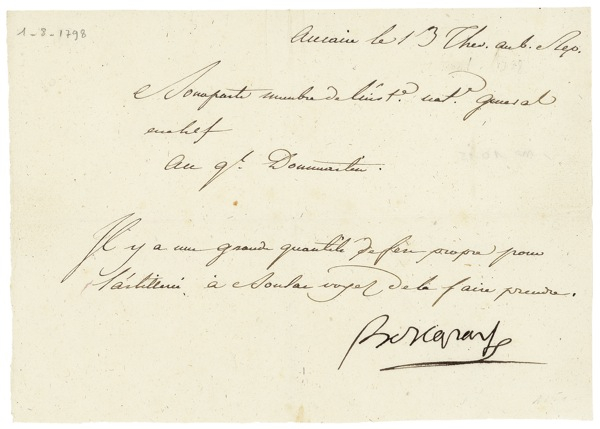 1-8-1798
Aucaire le 13 Ther. an 6. Rep.
Bonaparte membre de l'inst.t nat.l general
en chef
au g.l Dommartin.
Il y a une grande quantité de fer propre pour
l'artillerie à Boulac voyez de le faire prendre.